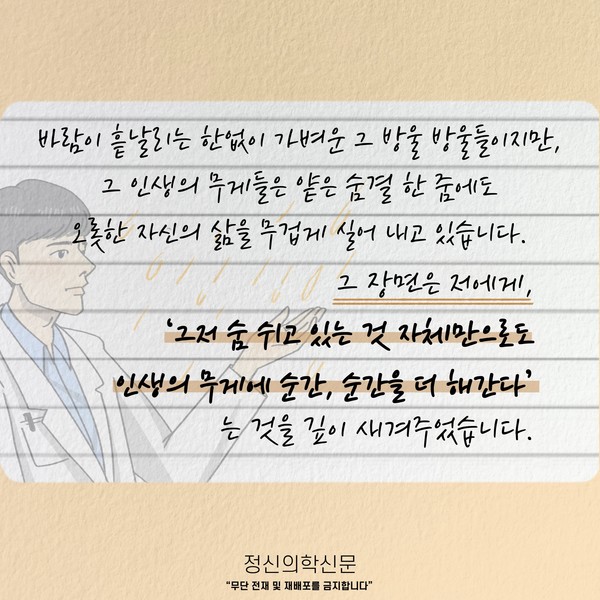 바람이 흩날리는 한없이 가벼운 그 방울 방울들이지만,
그 인생의 무게들은 얕은 숨결 한 줌에도
오롯한 자신의 삶을 무겁게 실어 내고 있습니다.
그 장면은 저에게,
‘그저 숨 쉬고 있는 것 자체만으로도
인생의 무게에 순간, 순간을 더 해간다’
는 것을 깊이 새겨주었습니다.
정신의학신문
“무단 전재 및 재배포를 금지합니다”